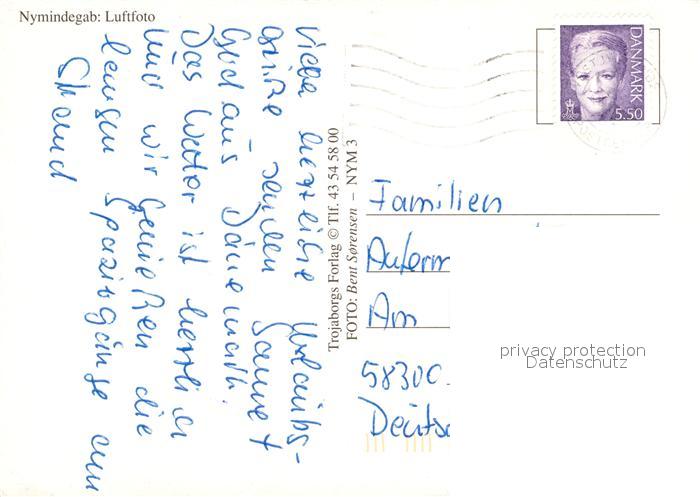 Nymindegab: Luftfoto
Viele herzliche Urlaubs-
grüße senden
Gerd aus Dänemark.
Das Wetter ist herrlich
und wir genießen die
langen Spaziergänge am
Strand
Trojaborgs Forlag © Tlf. 43 54 58 00
FOTO: Bent Sørensen – NYM 3
DANMARK
5.50
Familien
Am
58300
Deuts
privacy protection
Datenschutz